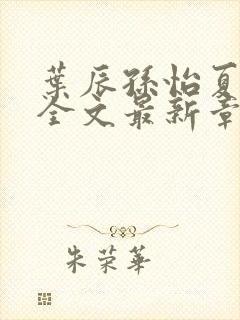 葉辰孫怡夏
全文最新章
朱荣華